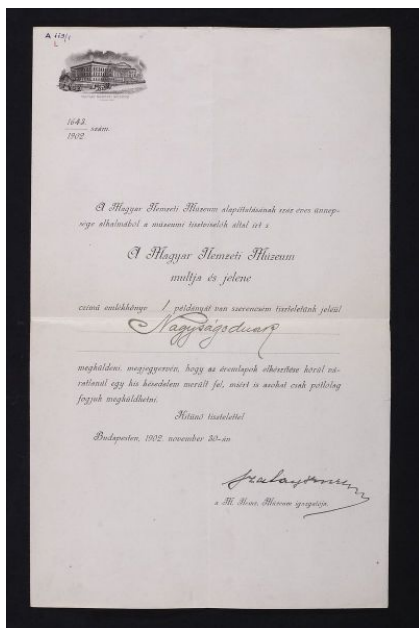 A 113/1
1643 szám.
1902
A Magyar Nemzeti Múzeum alapíttatásának száz éves ünnep-
sége alkalmából a múzeumi tisztviselők által írt s
A Magyar Nemzeti Múzeum
multja és jelene
czímű emlékkönyv 1 példányát van szerencsém tiszteletünk jeléül
Nagyságodnak
megküldeni, megjegyezvén, hogy az éremlapok elkészítése körül vá-
ratlanúl egy kis késedelem merült fel, miért is azokat csak pótlólag
fogjuk megküldhetni.
Kitünő tisztelettel
Budapesten, 1902. november 30-án
a M. Nemz. Múzeum igazgatója.